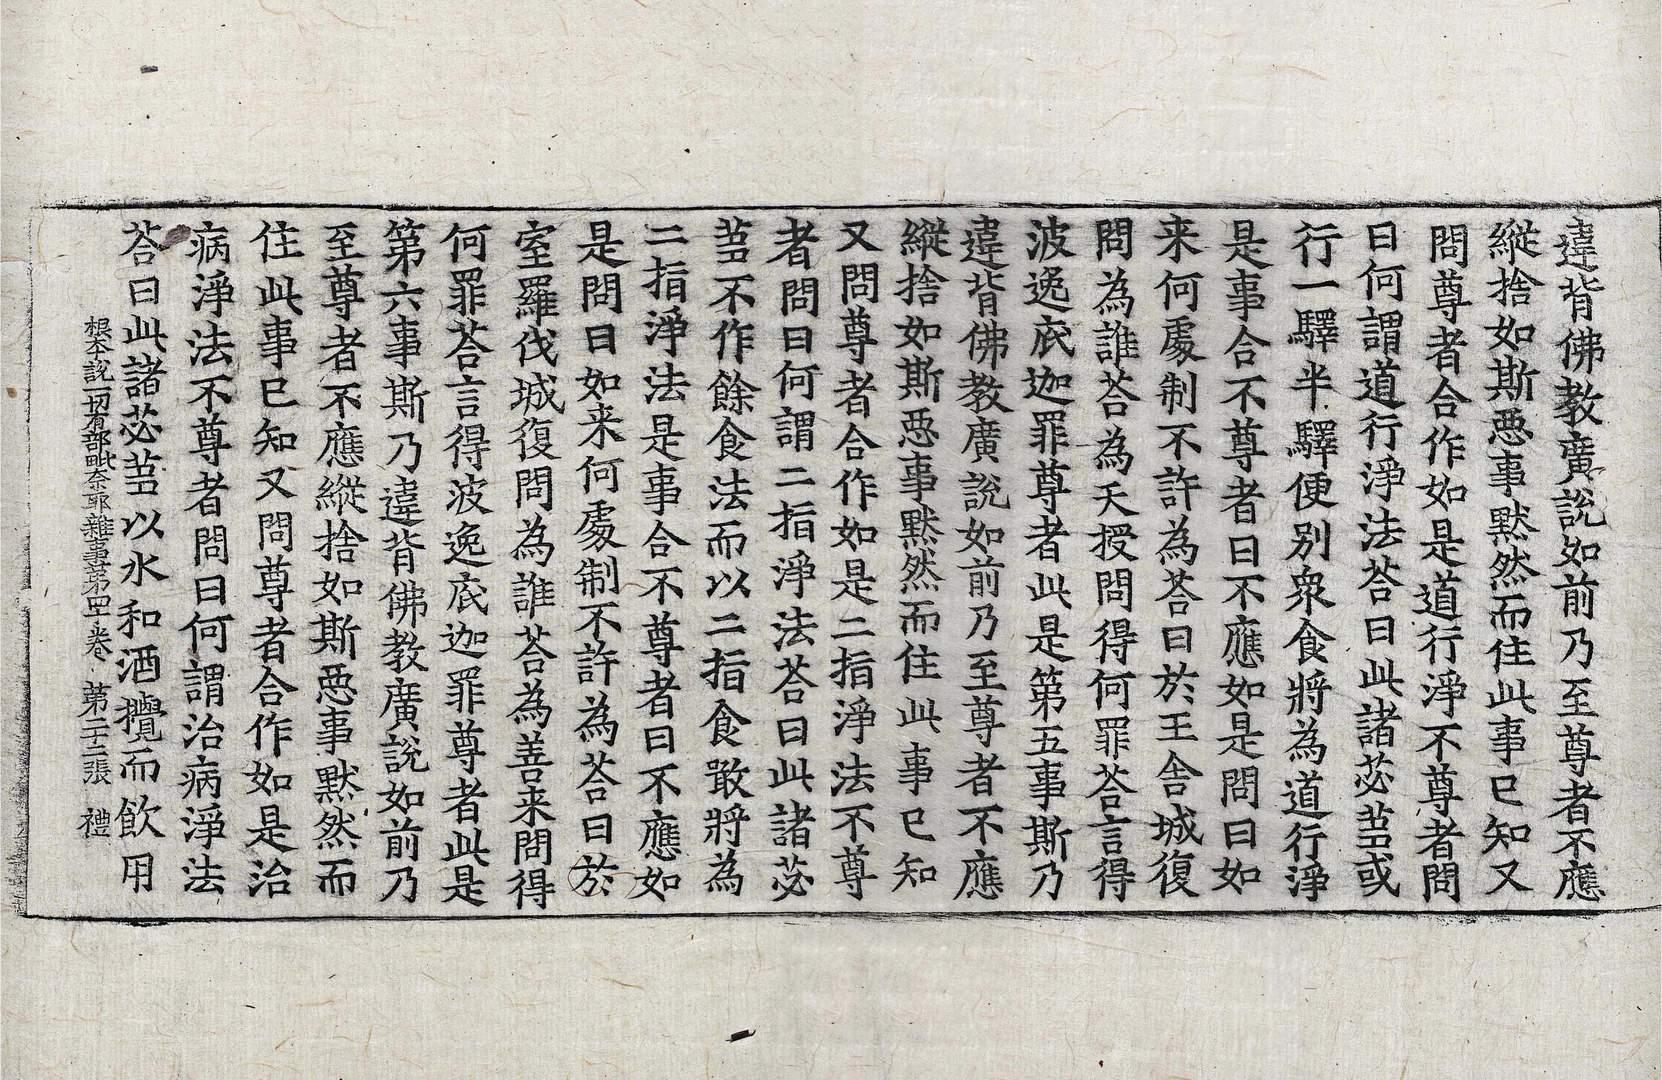 違背佛教廣說如前乃至尊者不應
縱捨如斯惡事默然而住此事已知又
問尊者合作如是道行淨不尊者問
曰何謂道行淨法荅曰此諸苾芻或
行一驛半驛便別衆食將為道行淨
是事合不尊者曰不應如是問曰如
来何處制不許為荅曰於王舍城復
問為誰荅為天授問得何罪荅言得
波逸底迦罪尊者此是第五事斯乃
違背佛教廣說如前乃至尊者不應
縱捨如斯惡事默然而住此事已知
又問尊者合作如是二指淨法不尊
者問曰何謂二指淨法荅曰此諸苾
芻不作餘食法而以二指食噉將為
二指淨法是事合不尊者曰不應如
是問曰如来何處制不許為荅曰於
室羅伐城復問為誰荅為善来問得
何罪荅言得波逸底迦罪尊者此是
第六事斯乃違背佛教廣說如前乃
至尊者不應縱捨如斯惡事默然而
住此事已知又問尊者合作如是治
病淨法不尊者問曰何謂治病淨法
荅曰此諸苾芻以水和酒攪而飲用
根本說一切有部毗奈耶雜事第四十卷 第二十二張 禮